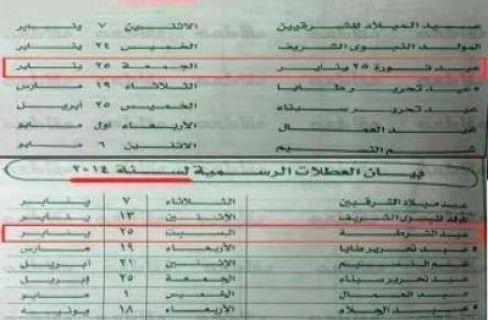 عيد الميلاد للشرقيين الاثنين ٧ يناير
المولد النبوى الشريف الخميس ٢٤ يناير
عيد ثورة ٢٥ يناير الجمعة ٢٥ يناير
* عيد تحرير طابا الثلاثاء ١٩ مارس
عيد تحرير سيناء الخميس ٢٥ أبريل
عيد العمال الأربعاء أول مايو
شم النسيم الاثنين ٦ مايو
بيان العطلات الرسمية لسنة ٢٠١٤
عيد ميلاد الشرقيين الثلاثاء ٧ يناير
النبوى الشريف الاثنين ١٣ يناير
عيد الشرطة السبت ٢٥ يناير
* عيد تحرير طابا الأربعاء ١٩ مارس
شم النسيم الاثنين ٢١ أبريل
عيد تحرير سيناء الجمعة ٢٥ إبريل
عيد العمال الخميس ١ مايو
* عيد الجلاء الأربعاء ١٨ يونيه